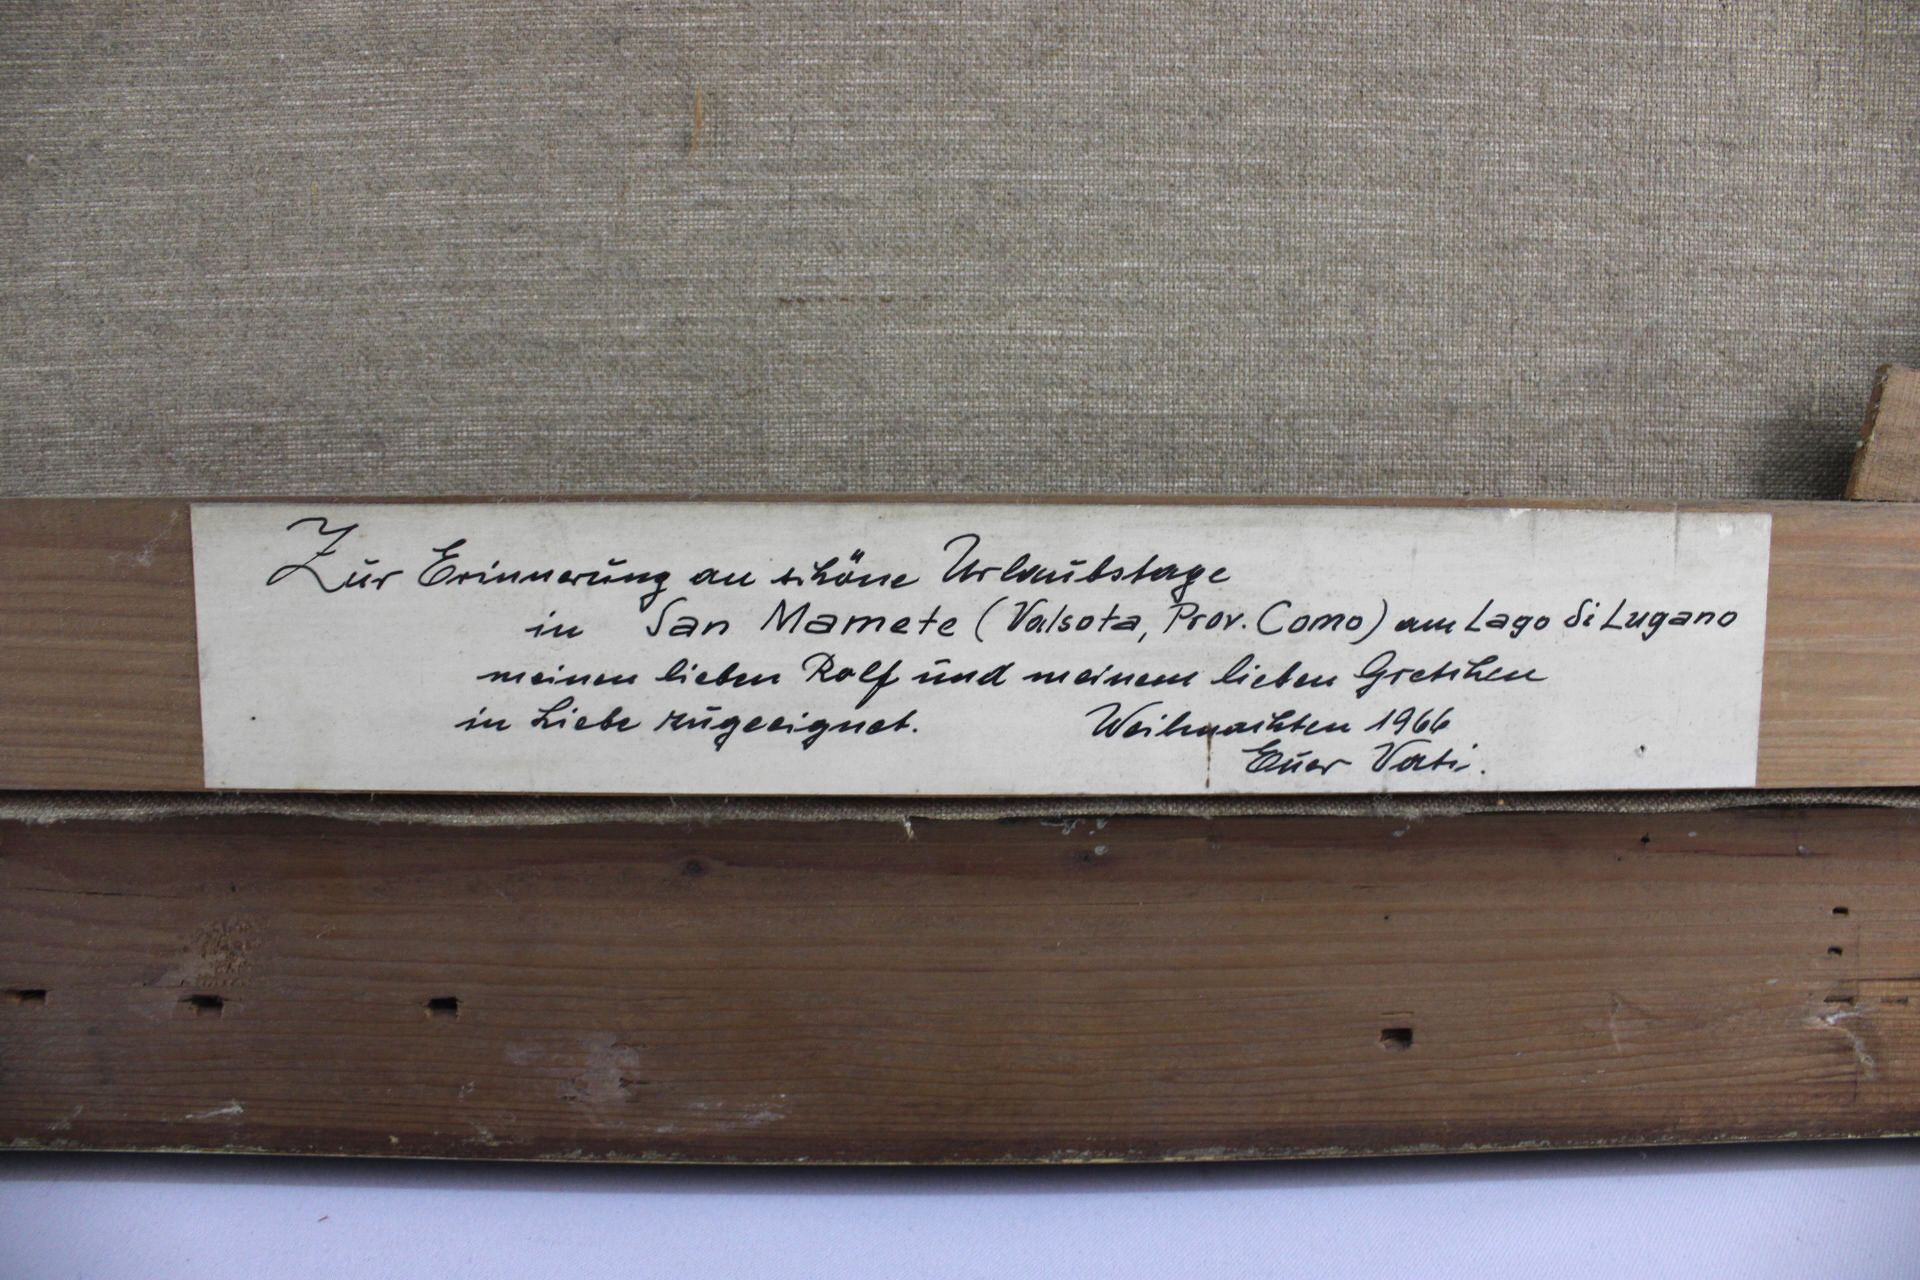 Zur Erinnerung an schöne Urlaubstage
in San Mamete (Valsota, Prov. Como) am Lago di Lugano
meinen lieben Rolf und meinem lieben Gretchen
in Liebe zugeeignet. Weihnachten 1966
Euer Vati.